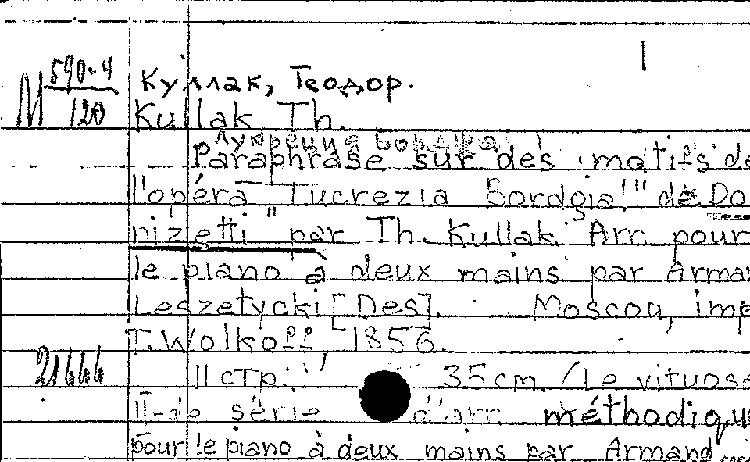 1
М 590-4
120
Куллак, Теодор.
Kullak Th.
Лукреция Борджа
Paraphrase sur des motifs de
l'opéra "Lucrezia Bordgia!" de Do
nizetti" par Th. Kullak Arr pour
le piano à deux mains par Arman
Leszetycki [Des]. Moscou, imp
T. Wolkoff 1856.
21666
11 стр. 35cm. /Le vituose
II-de série d'arr méthodiqu
pour le piano à deux mains par Armand